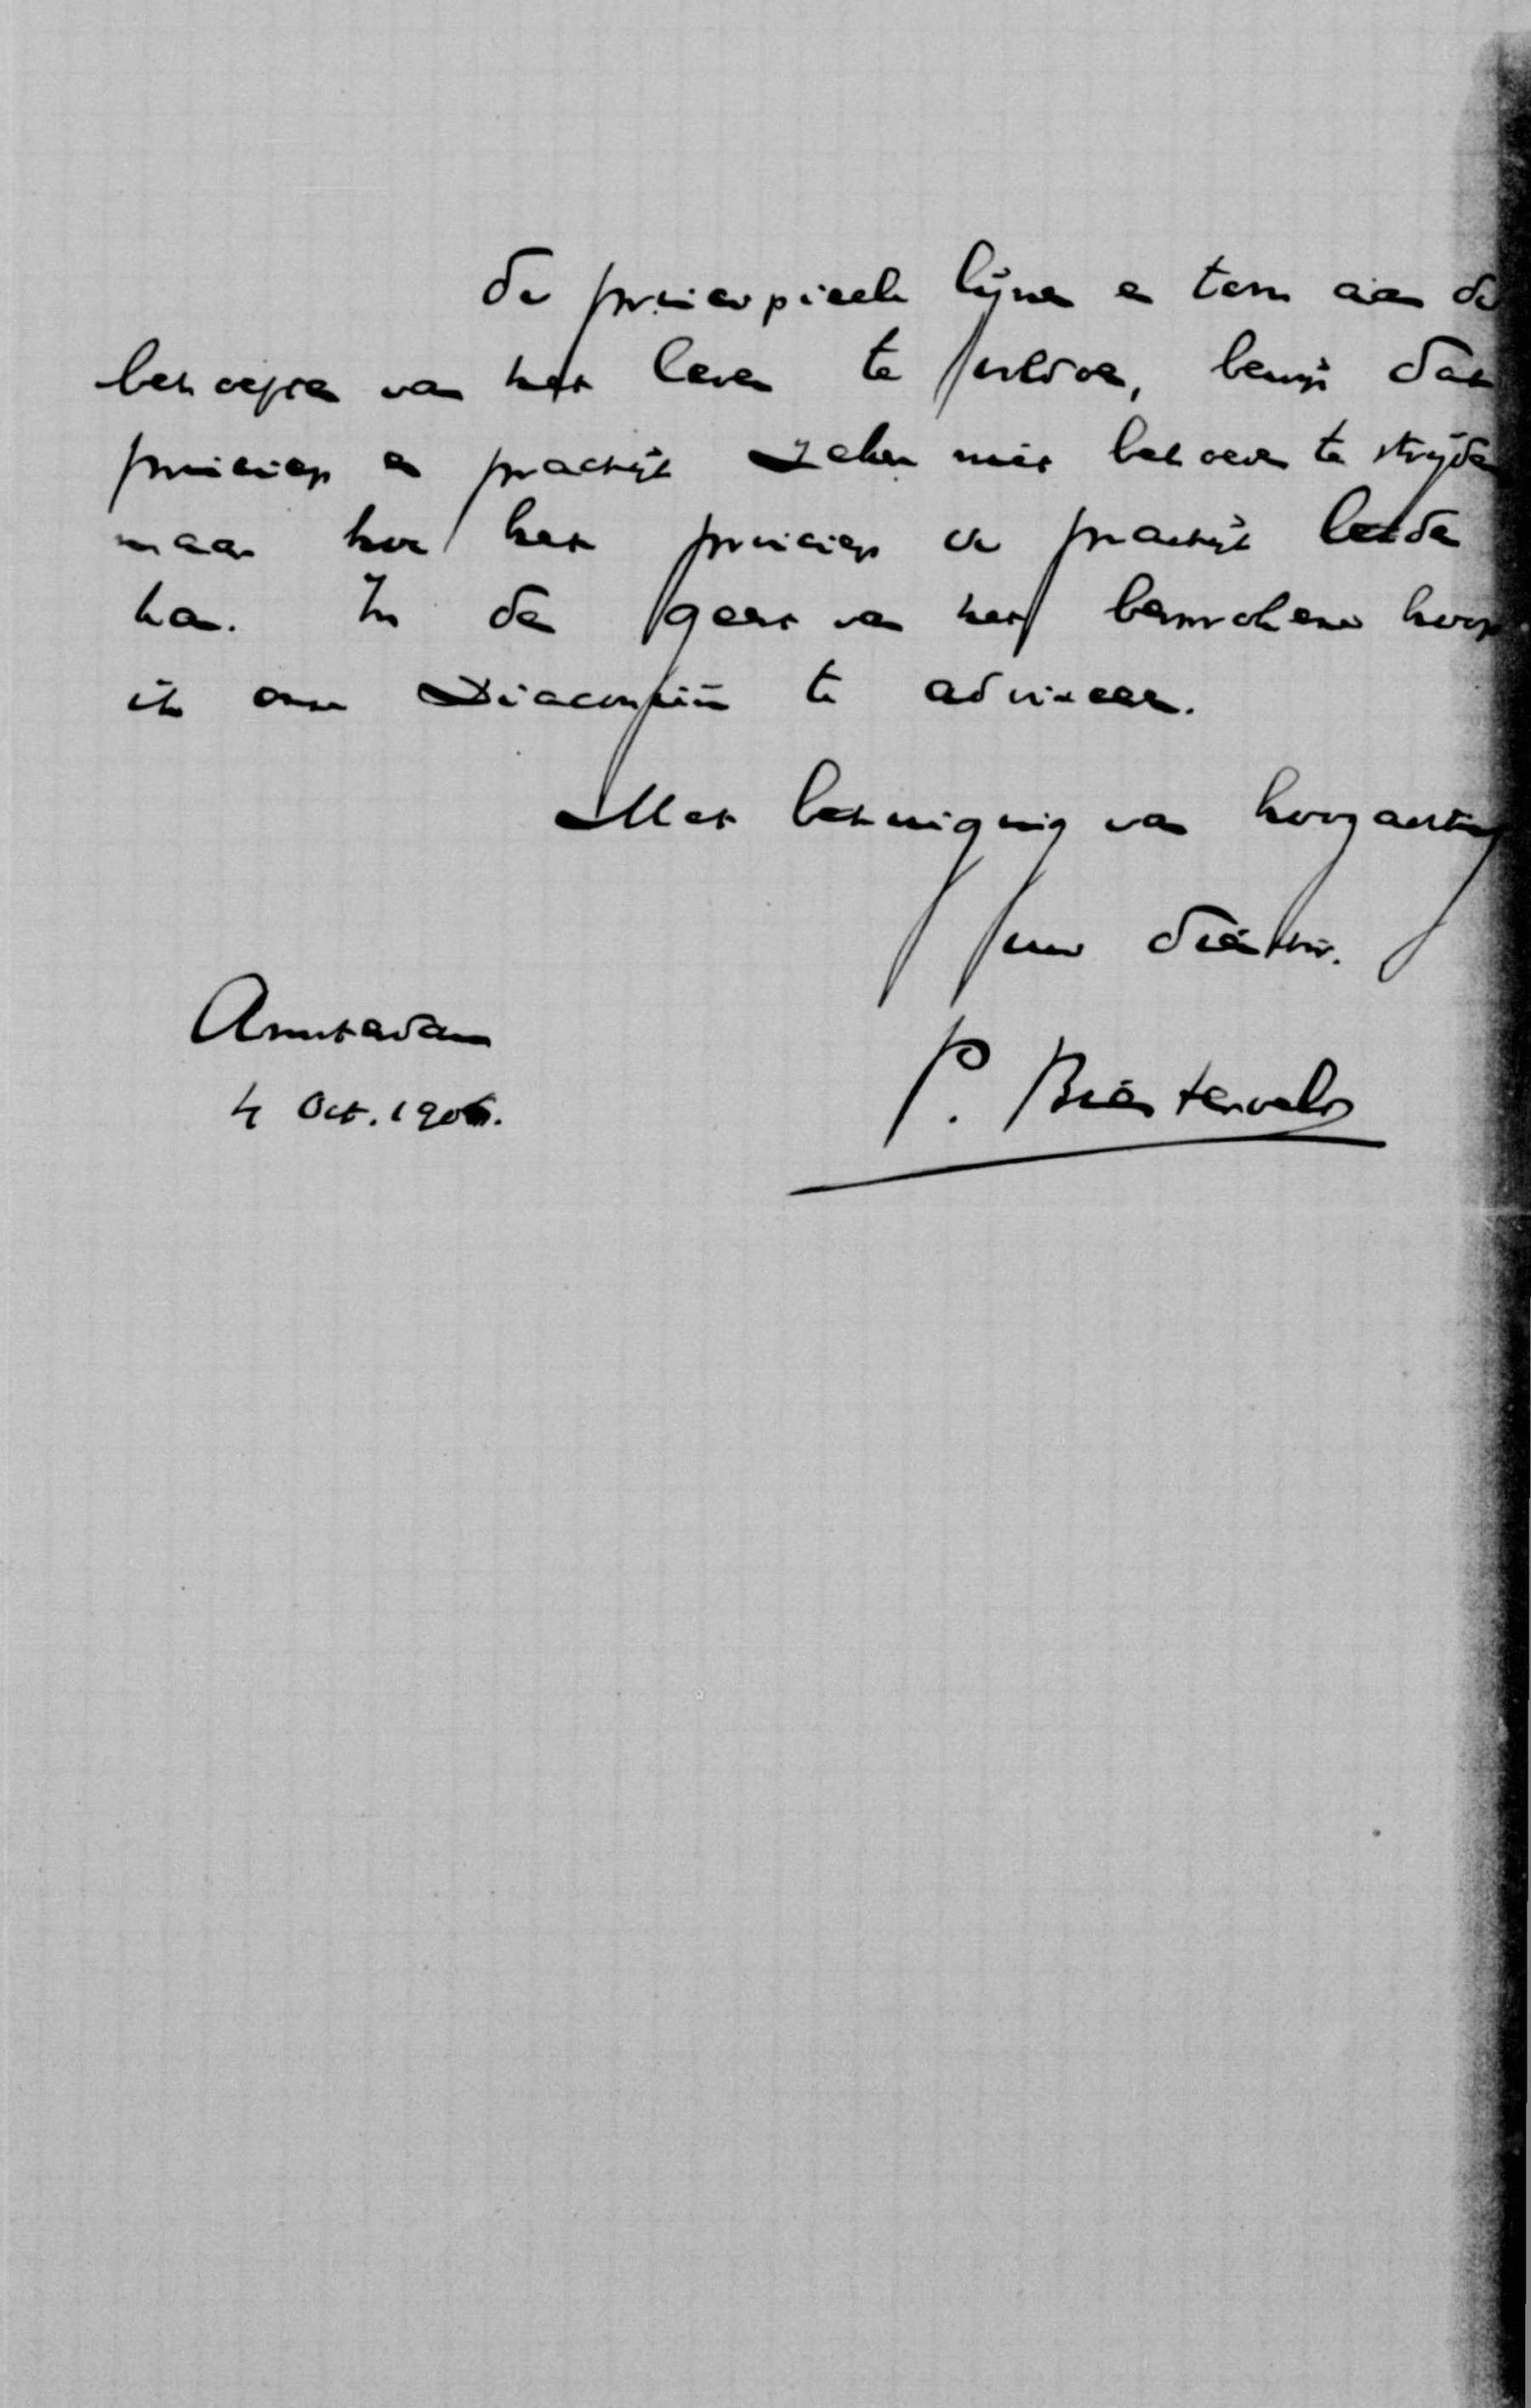 de principieele lijnen en tevens aan de
behoeften van het leven te voldoen, bewijst dat
principe en practijk zeker niet behoeven te strijden
maar hoe het principe de practijk leiden
kan. In den geest van het besprokene hoop
ik onze Diaconieën te adviseeren.
Met betuiging van hoogachting
Uw dienstw.
P. Biesterveld
Amsterdam
4 Oct. 1906.